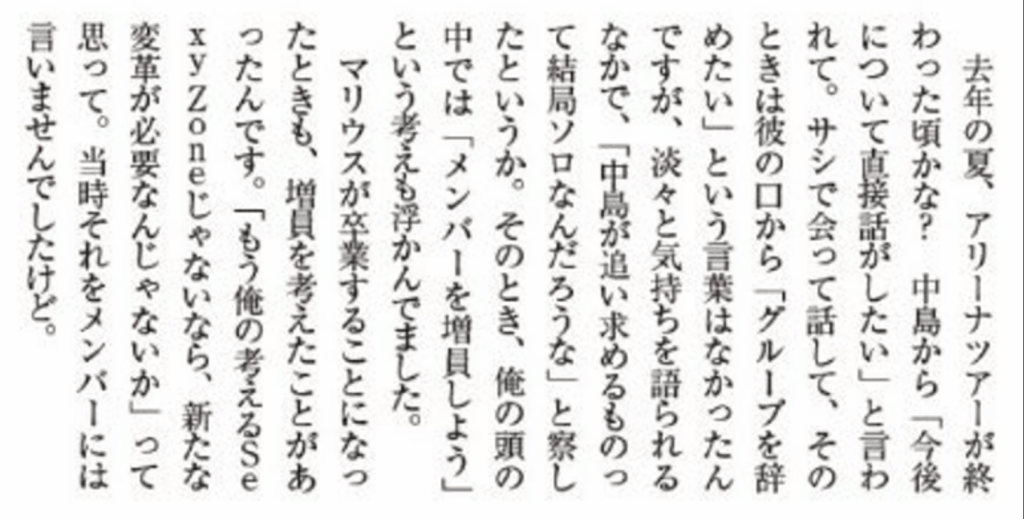 去年の夏、アリーナツアーが終
わった頃かな?　中島から「今後
について直接話がしたい」と言わ
れて。サシで会って話して、その
ときは彼の口から「グループを辞
めたい」という言葉はなかったん
ですが、淡々と気持ちを語られる
なかで、「中島が追い求めるものっ
て結局ソロなんだろうな」と察し
たというか。そのとき、俺の頭の
中では「メンバーを増員しよう」
という考えも浮かんでました。
マリウスが卒業することになっ
たときも、増員を考えたことがあ
ったんです。「もう俺の考えるSe
xyZoneじゃないなら、新たな
変革が必要なんじゃないか」って
思って。当時それをメンバーには
言いませんでしたけど。